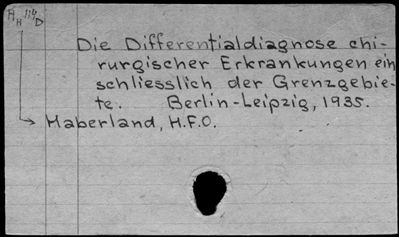 A H 114 D
Die Differentialdiagnose chi-
rurgischer Erkrankungen ein
schliesslich der Grenzgebie-
te. Berlin-Leipzig, 1935.
Haberland, H.F.O.